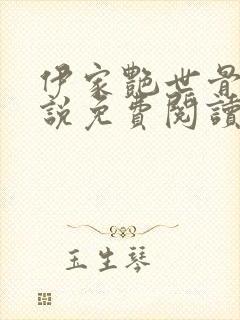 伊家艷世
說免費閱讀
玉生琴